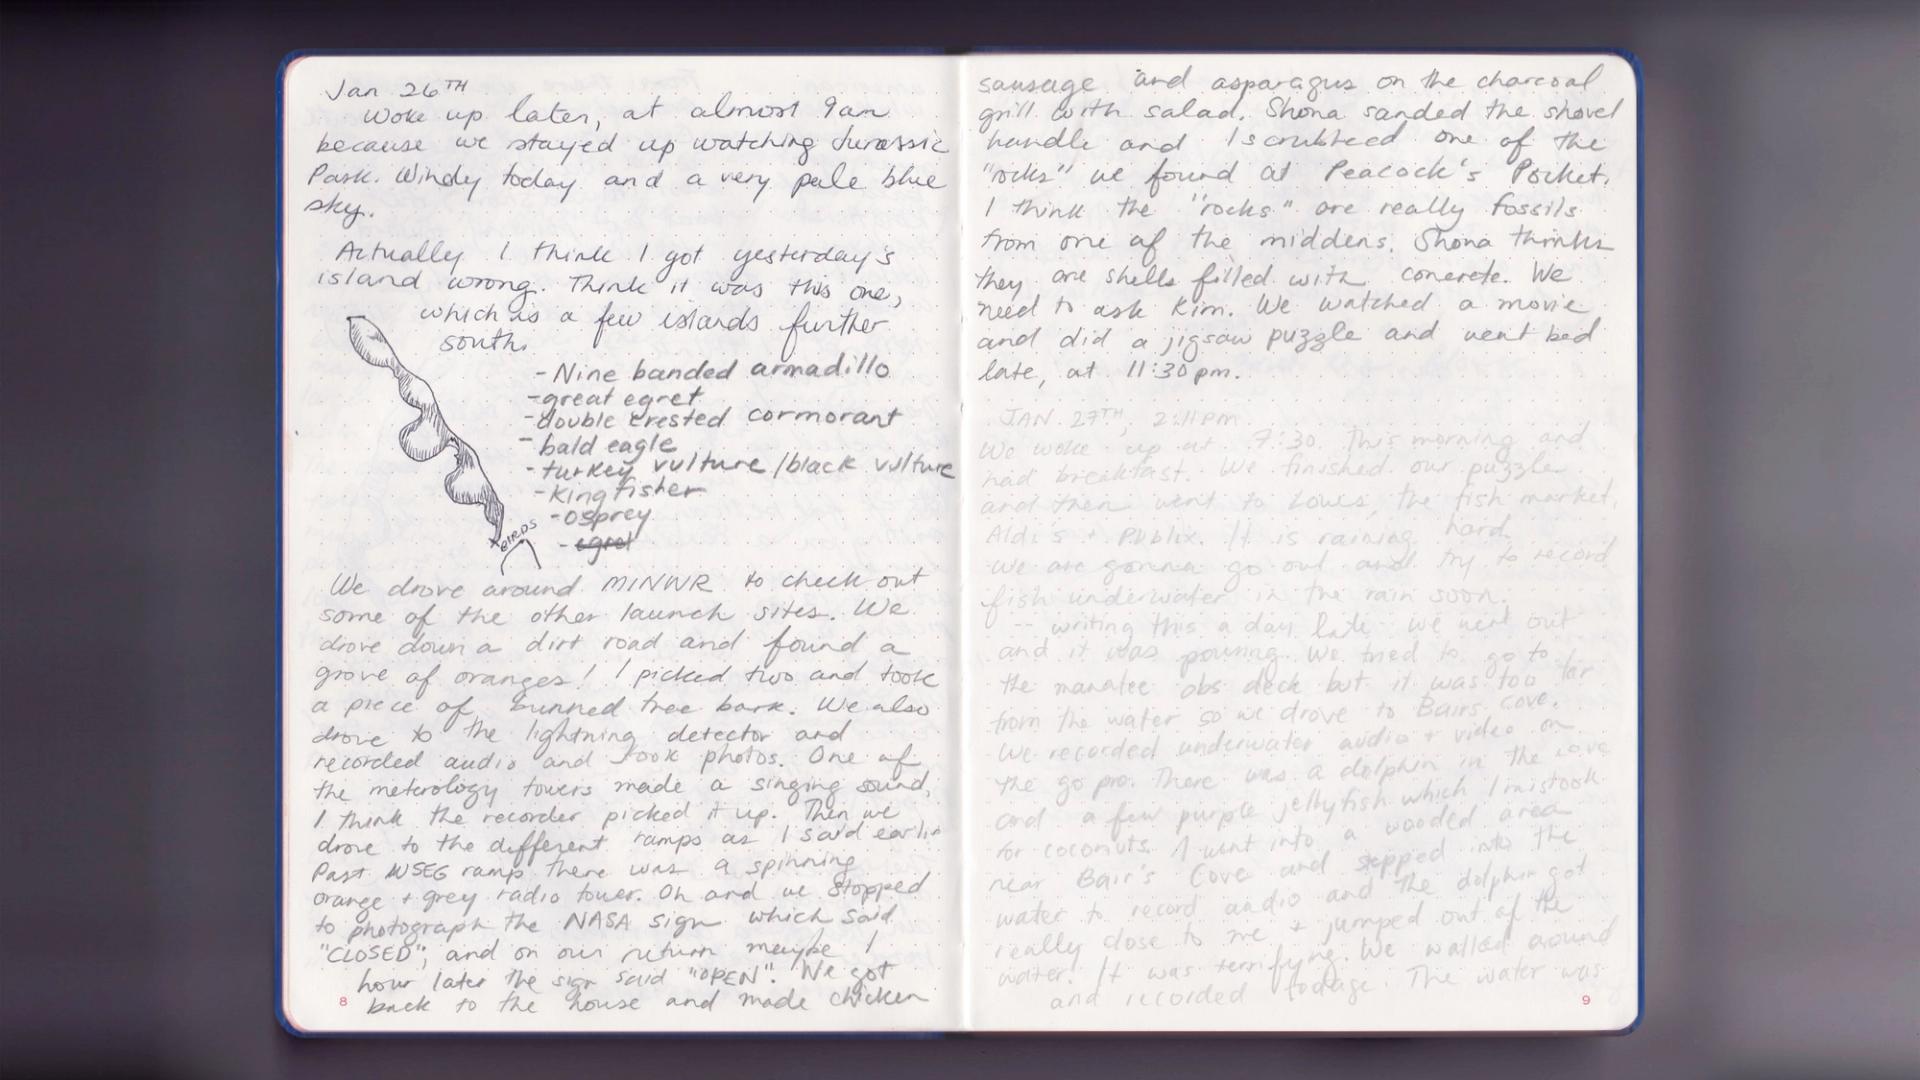 Jan 26TH
Woke up later, at almost 9am
because we stayed up watching Jurassic
Park. Windy today and a very pale blue
sky.
Actually I think I got yesterday's
island wrong. Think it was this one,
which is a few islands further
south.
- Nine banded armadillo
- great egret
- double crested cormorant
- bald eagle
- turkey vulture / black vulture
- kingfisher
- osprey
- egret
x BIRDS
We drove around MINWR to check out
some of the other launch sites. We
drove down a dirt road and found a
grove of oranges! I picked two and took
a piece of burned tree bark. We also
drove to the lightning detector and
recorded audio and took photos. One of
the meterology towers made a singing sound,
I think the recorder picked it up. Then we
drove to the different ramps as I said earlier
Past WSEG ramp there was a spinning
orange + grey radio tower. Oh and we stopped
to photograph the NASA sign which said
"CLOSED", and on our return maybe 1
hour later the sign said "OPEN". We got
back to the house and made chicken
8
sausage and asparagus on the charcoal
grill with salad. Shona sanded the shovel
handle and I scrubbeed one of the
"rocks" we found at Peacock's Pocket.
I think the "rocks" are really fossils
from one of the middens. Shona thinks
they are shells filled with concrete. We
need to ask Kim. We watched a movie
and did a jigsaw puzzle and went bed
late, at 11:30pm.
JAN. 27TH, 2:11pm
We woke up at 7:30 this morning and
had breakfast. We finished our puzzle
and then went to Lowes, the fish market,
Aldi's + Publix. It is raining hard.
We are gonna go out and try to record
fish underwater in the rain soon.
-- writing this a day late - we went out
and it was pouring. We tried to go to
the manatee obs deck but it was too far
from the water so we drove to Bairs Cove.
We recorded underwater audio + video on
the go pro. There was a dolphin in the cove
and a few purple jellyfish which I mistook
for coconuts. I went into a wooded area
near Bair's Cove and stepped into the
water to record audio and the dolphin got
really close to me + jumped out of the
water. It was terrifying. We walked around
and recorded footage. The water was
9